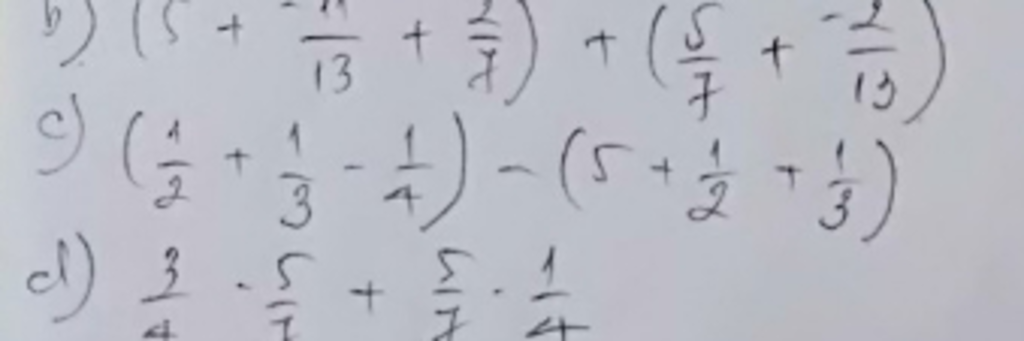 b) (5 + -11/13 + 2/7) + (5/7 + -2/13)
c) (1/2 + 1/3 - 1/4) - (5 + 1/2 + 1/3)
d) 3/4 . 5/7 + 5/7 . 1/4